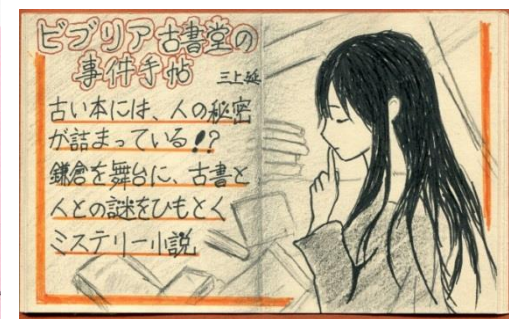 ビブリア古書堂の
事件手帖
三上延
古い本には、人の秘密
が詰まっている!?
鎌倉を舞台に、古書と
人との謎をひもとく
ミステリー小説